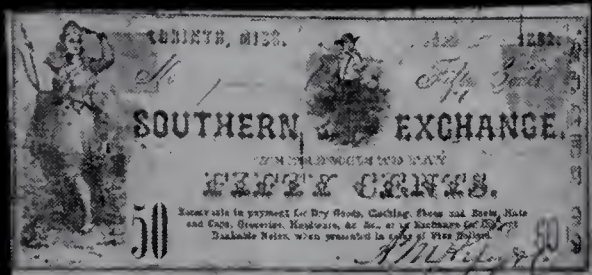 CORINTH, MISS.
No
Fifty Cents
SOUTHERN EXCHANGE.
FIFTY CENTS.
50
Receivable in payment for Dry Goods, Clothing, Shoes and Boots, Hats
and Caps, Groceries, Hardware, &c. &c., or in Exchange for
Bankable Notes, when presented in sums of Five Dollars.
50